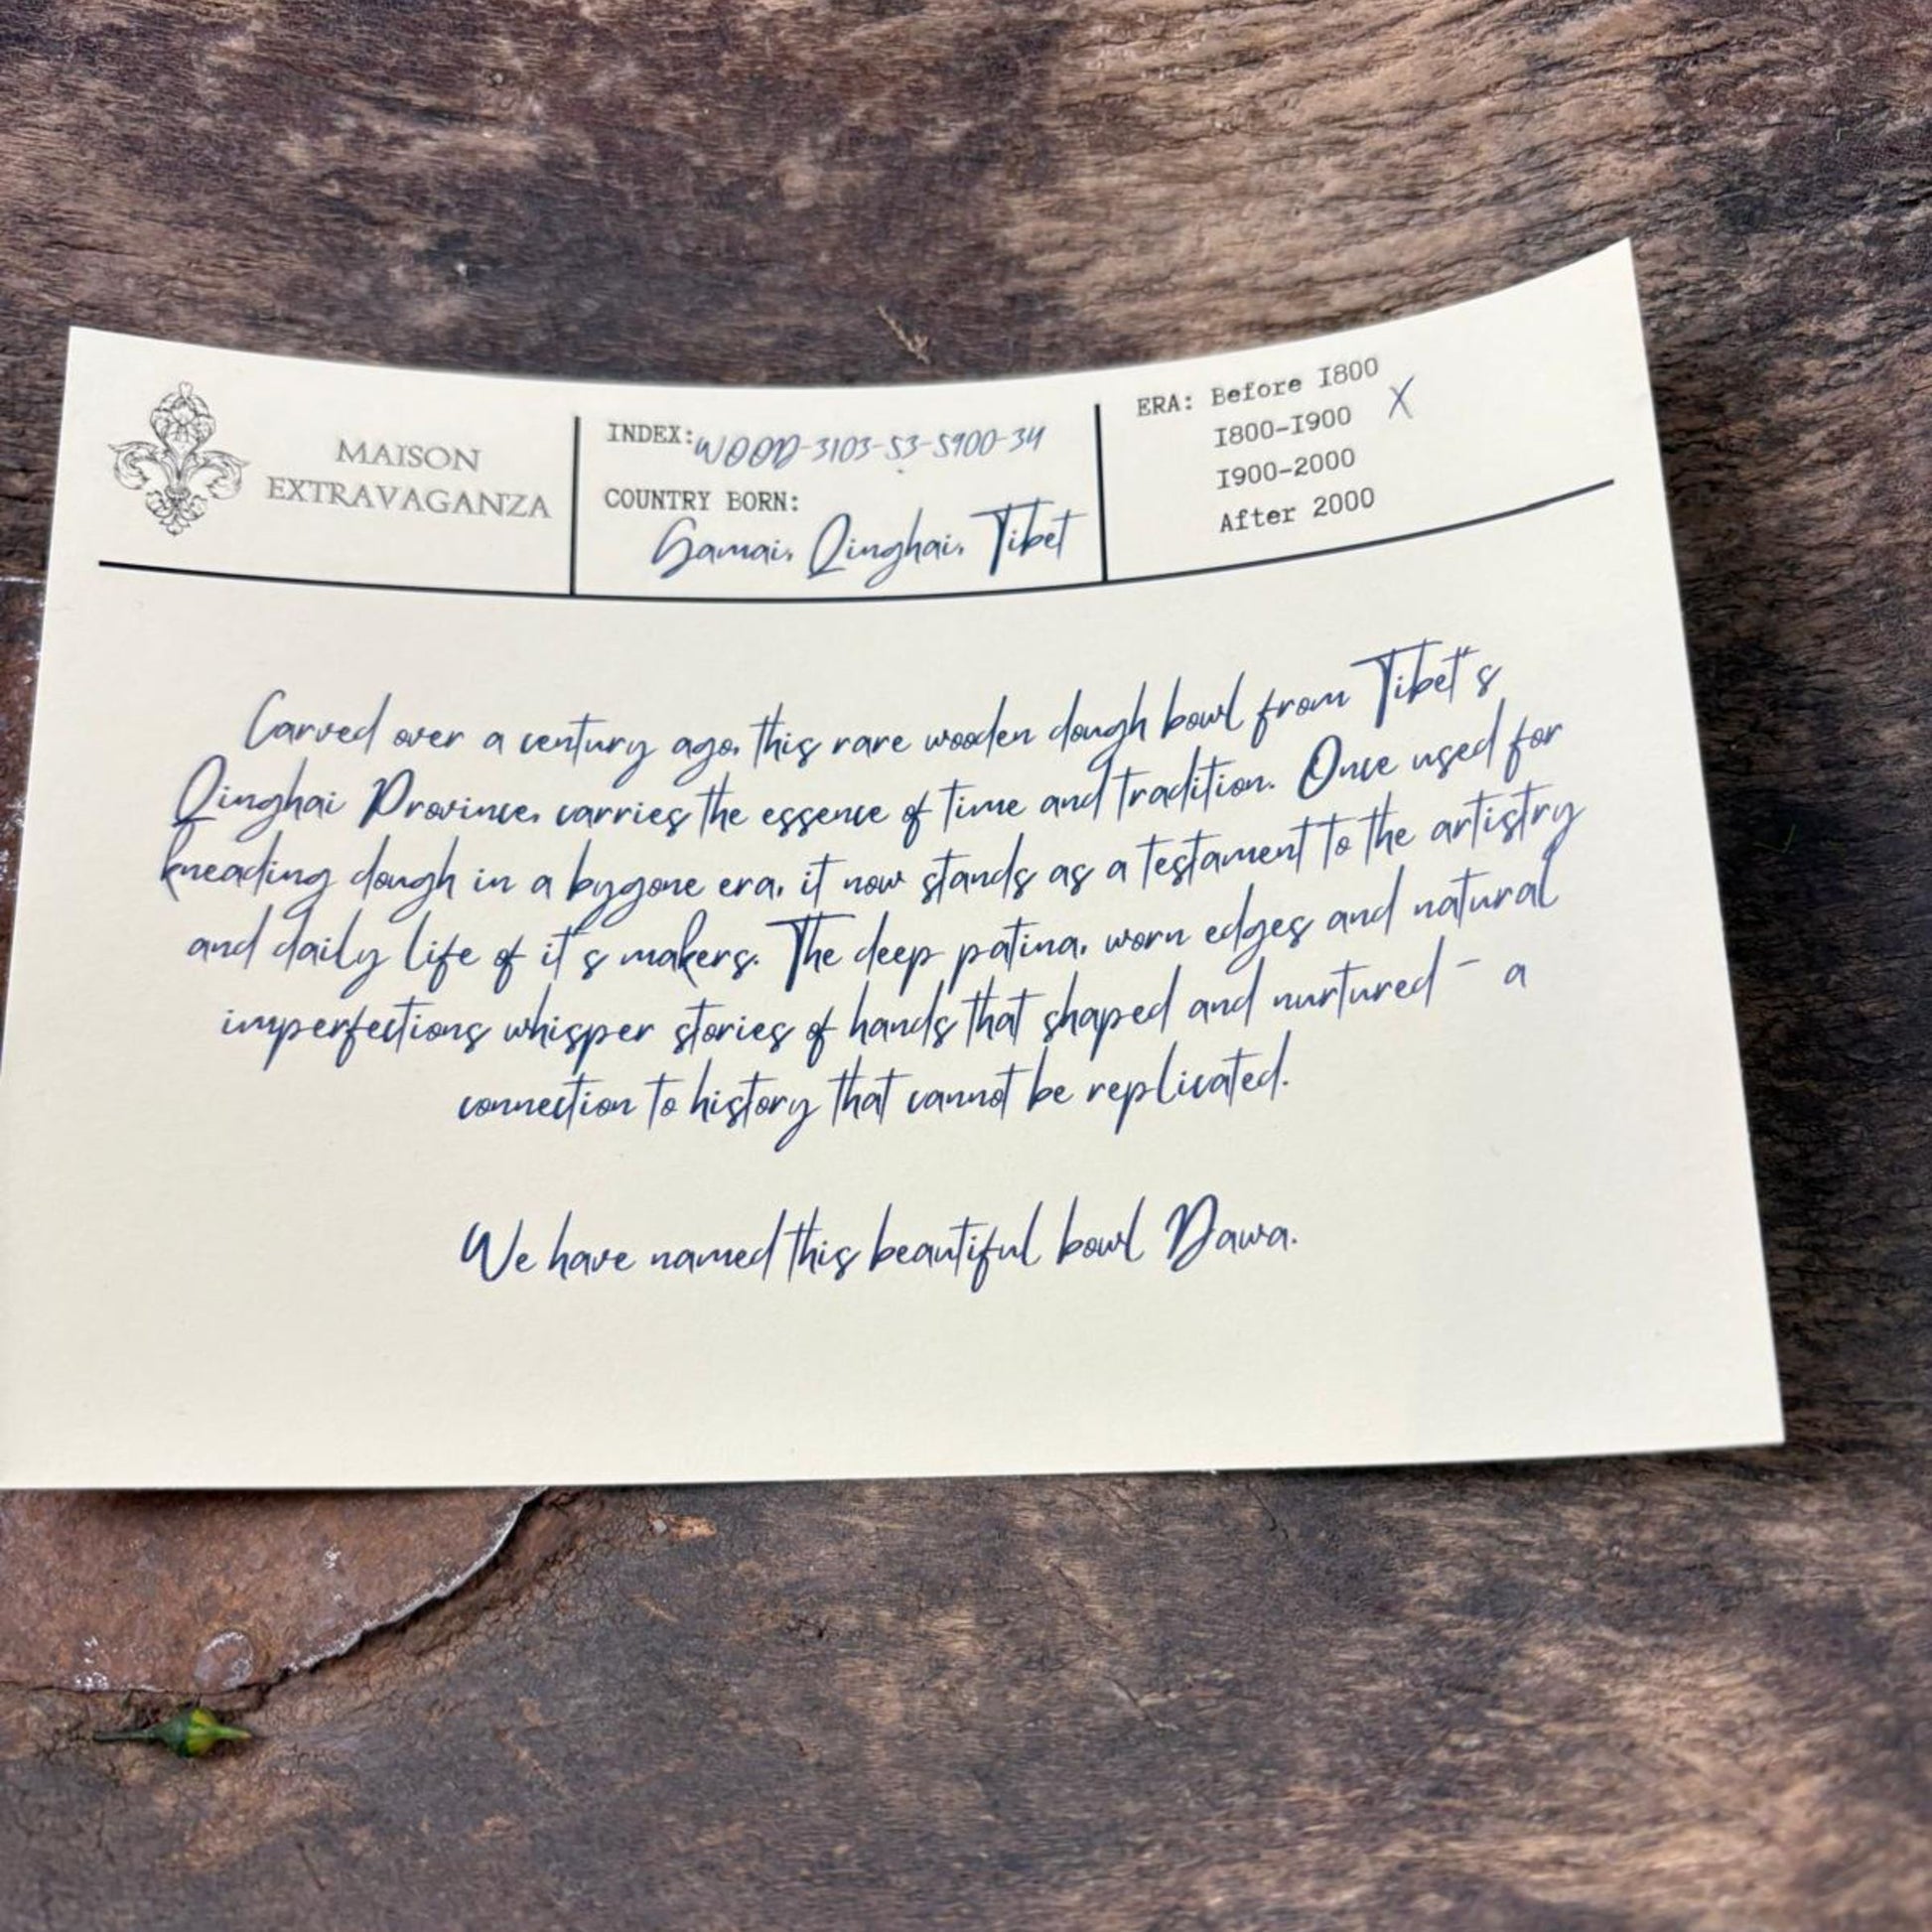 MAISON
EXTRAVAGANZA
INDEX: WOOD-3103-53-5900-34
COUNTRY BORN:
Gamai, Qinghai, Tibet
ERA: Before I800
I800-I900 X
I900-2000
After 2000
Carved over a century ago, this rare wooden dough bowl from Tibet's
Qinghai Province, carries the essence of time and tradition. Once used for
kneading dough in a bygone era, it now stands as a testament to the artistry
and daily life of it's makers. The deep patina, worn edges and natural
imperfections whisper stories of hands that shaped and nurtured - a
connection to history that cannot be replicated.
We have named this beautiful bowl Dawa.